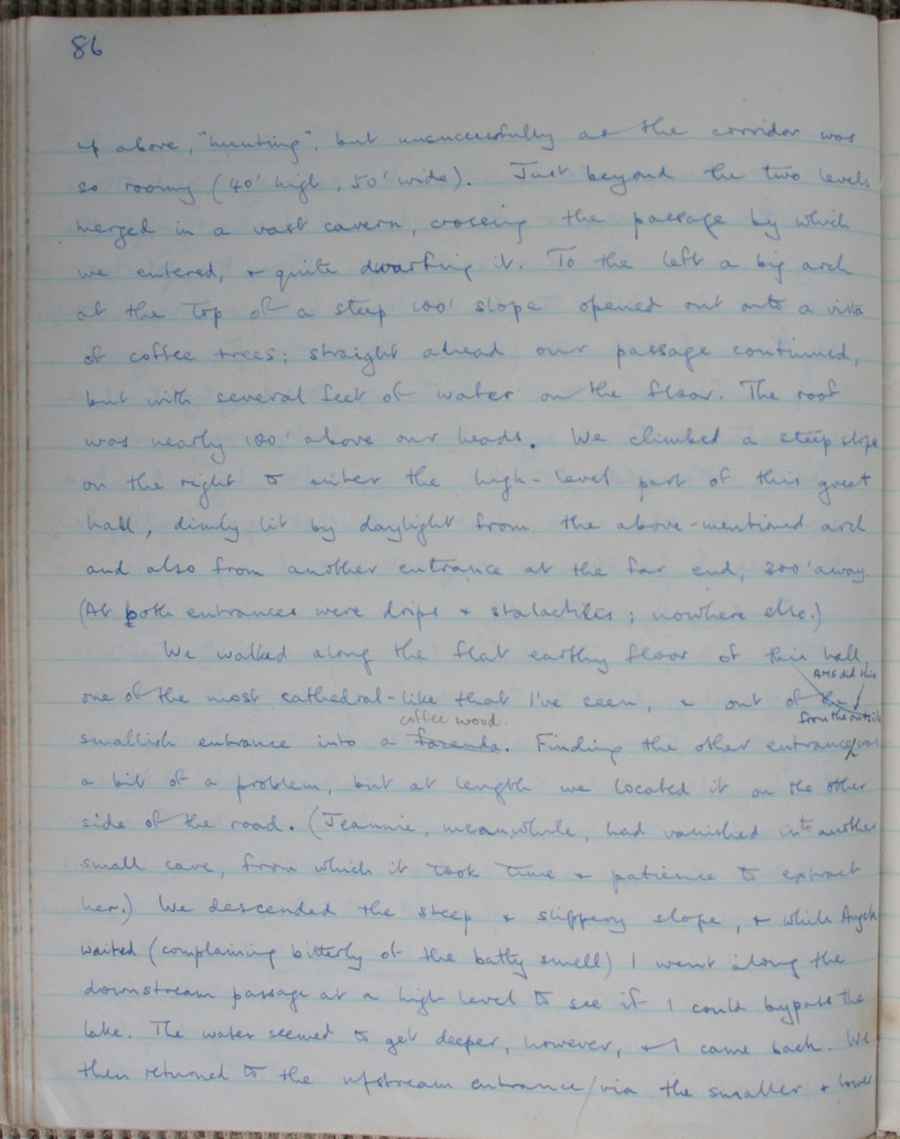 86
up above, "hunting", but unsuccessfully as the corridor was
so roomy (40' high, 50' wide). Just beyond the two levels
merged in a vast cavern, crossing the passage by which
we entered, & quite dwarfing it. To the left a big arch
at the top of a steep 100' slope opened out onto a vista
of coffee trees; straight ahead our passage continued,
but with several feet of water on the floor. The roof
was nearly 100' above our heads. We climbed a steep slope
on the right to enter the high-level part of this great
hall, dimly lit by daylight from the above-mentioned arch
and also from another entrance at the far end, 300' away.
(At both entrances were drips & stalactites; nowhere else.)
We walked along the flat earthy floor of this hall,
AMS did this
one of the most cathedral-like that I've seen, & out of the
coffee wood. from the outside
smallish entrance into a fazenda. Finding the other entrance was
a bit of a problem, but at length we located it on the other
side of the road. (Jeannie, meanwhile, had vanished into another
small cave, from which it took time & patience to extract
her.) We descended the steep & slippery slope, & while
waited (complaining bitterly of the batty smell) I went along the
downstream passage at a high level to see if I could bypass the
lake. The water seemed to get deeper, however, & I came back. We
then returned to the upstream entrance/via the smaller & lower